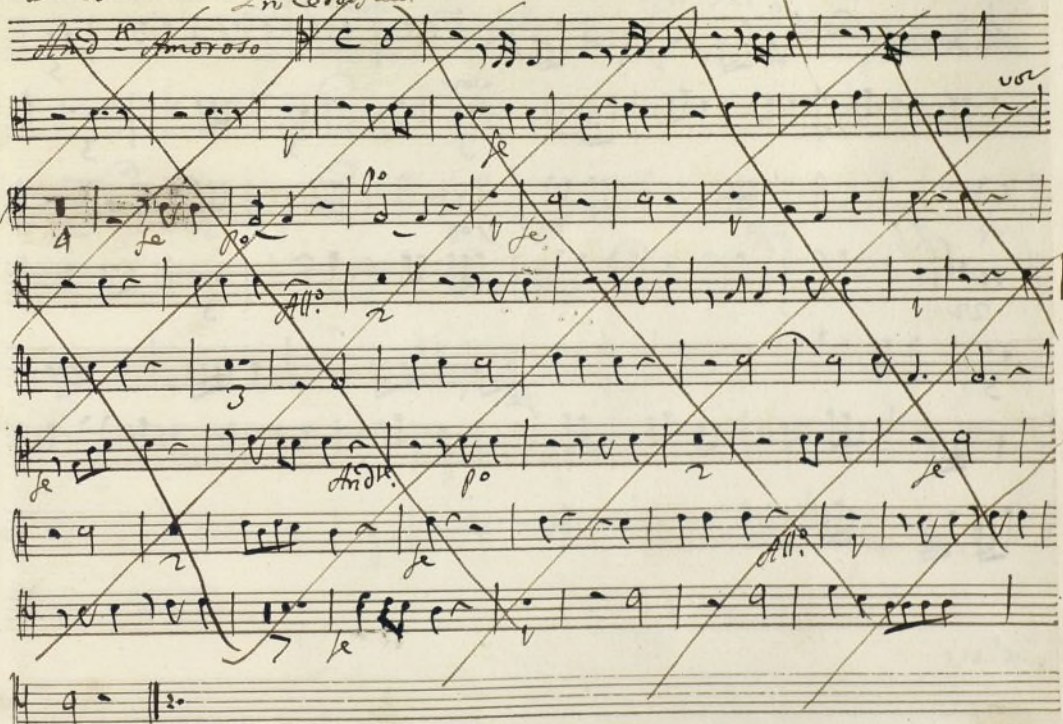 And.te Amoroso C
voz
4 fe po po 1 fe 1
All.o 2 1
3
fe And.te po 2 fe
2 fe All.o 1
7 fe 1
2.